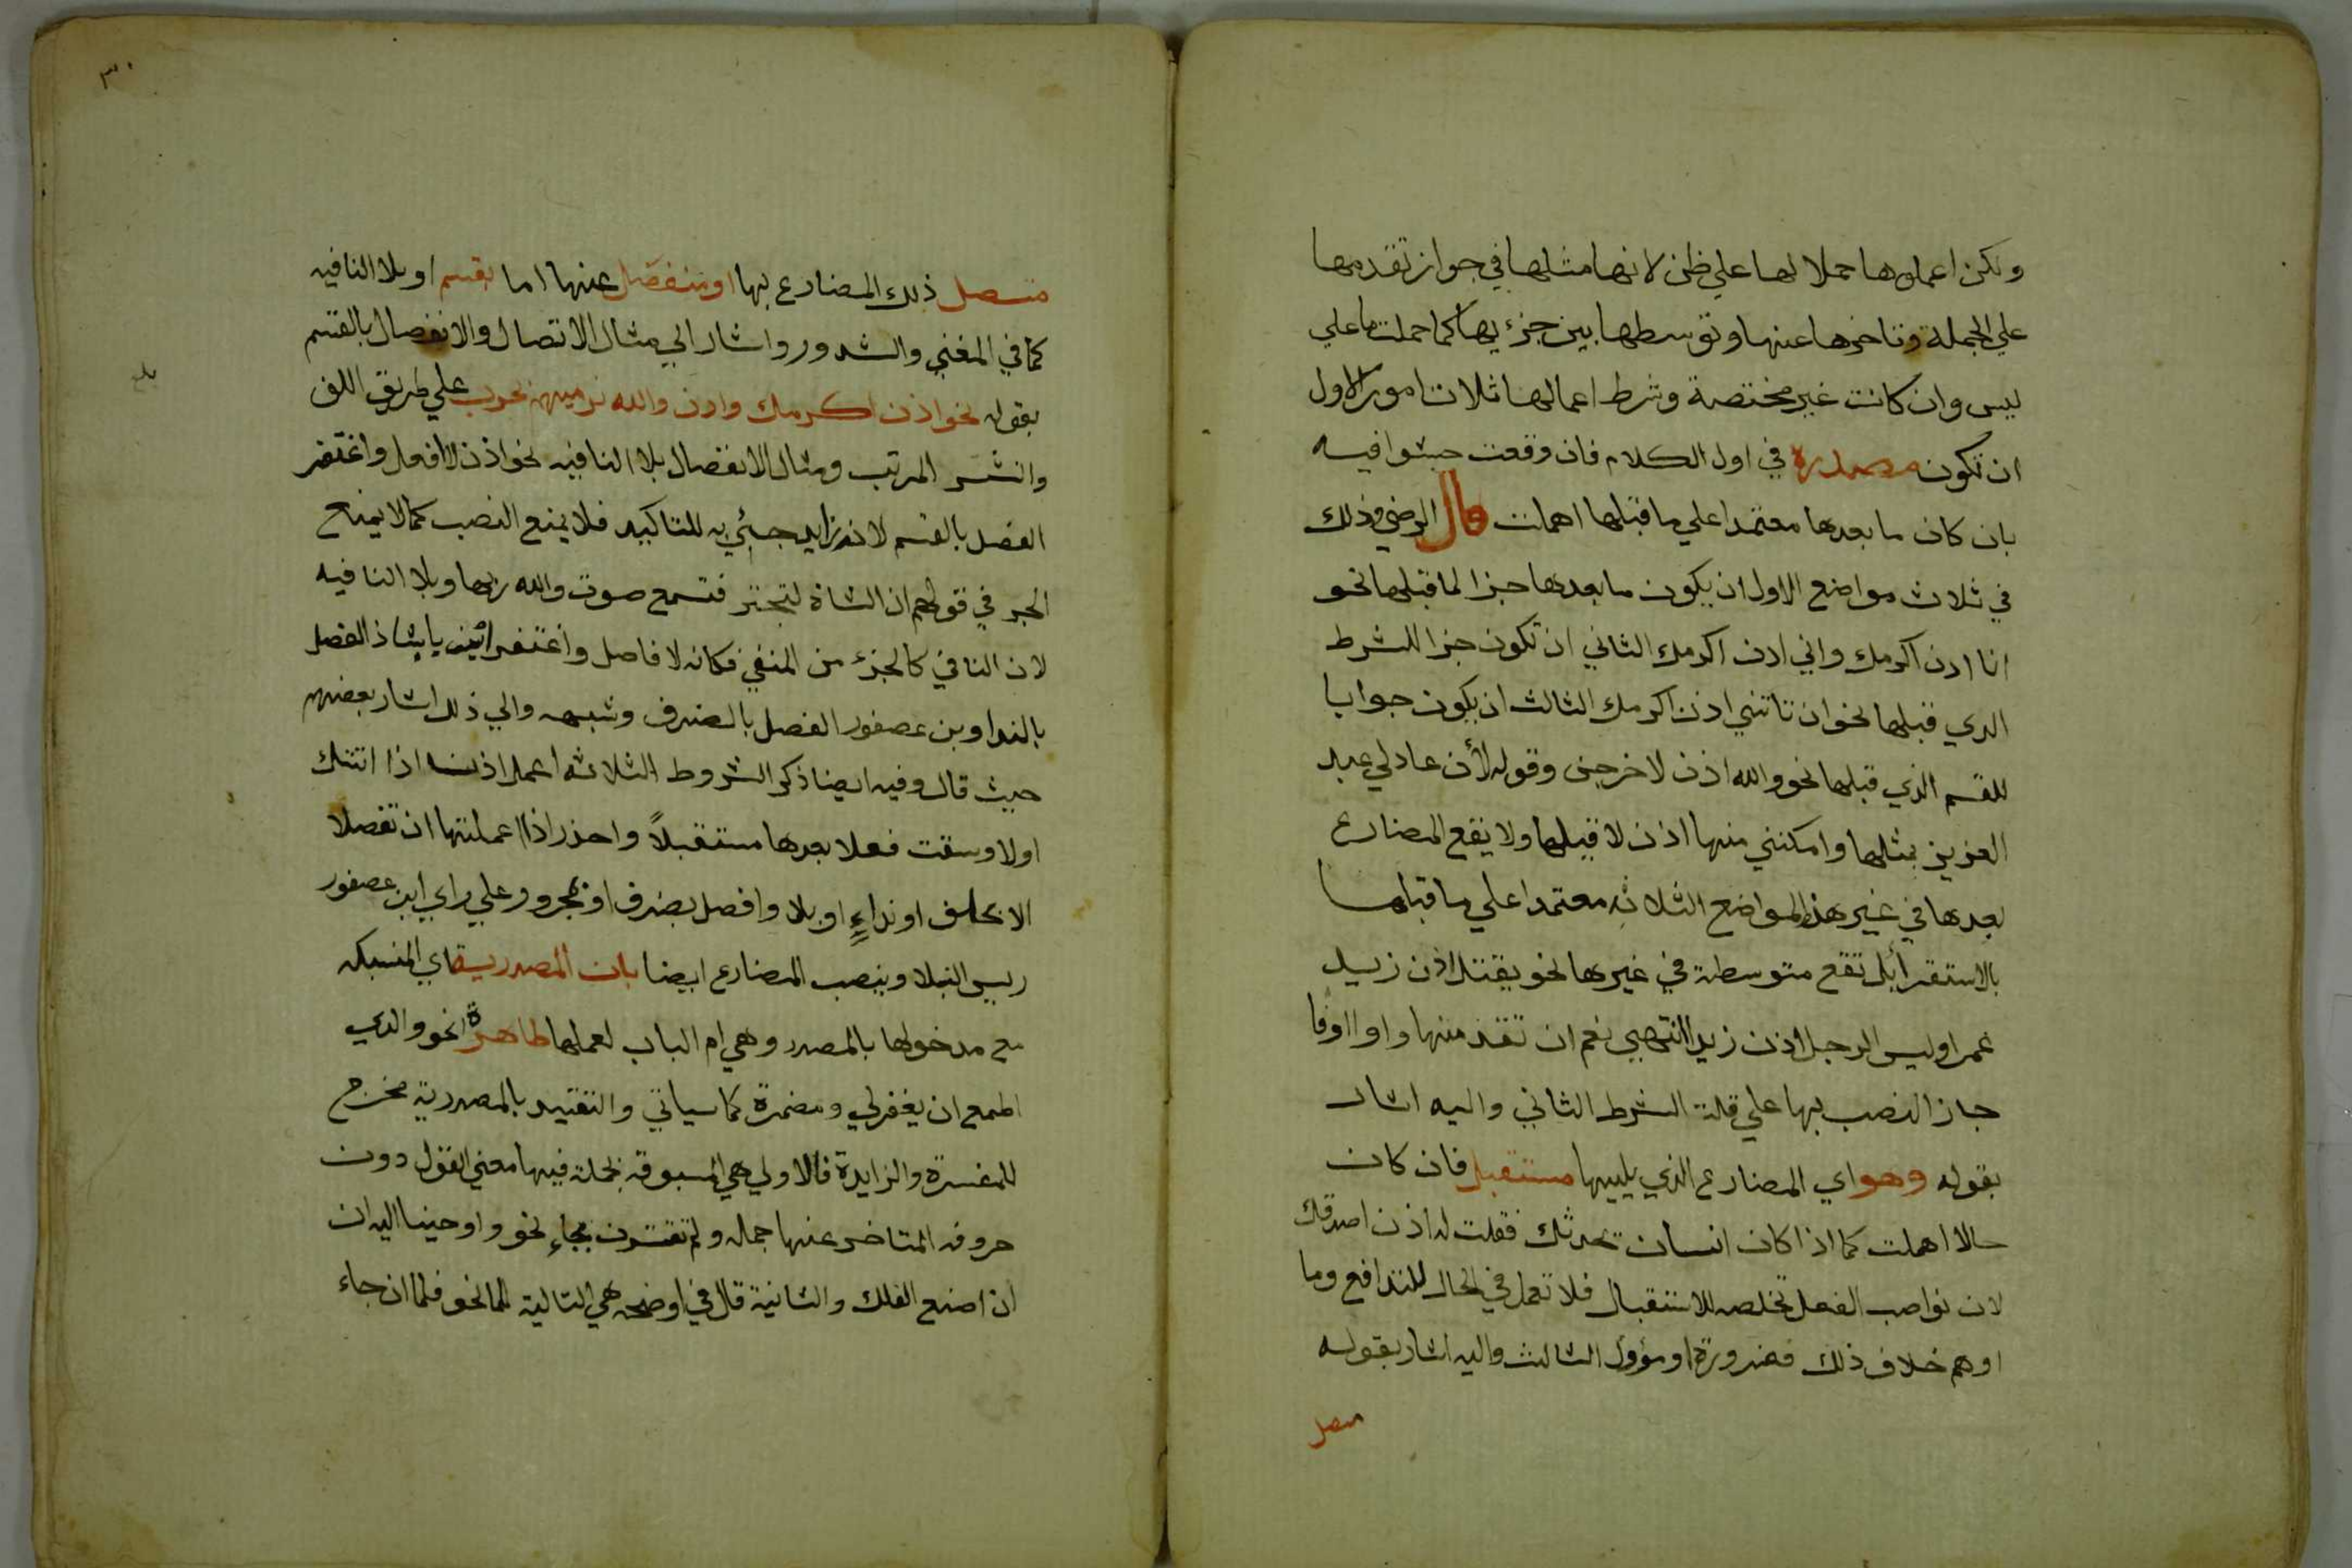 ولكن اعملوها حملا لها علي ظن لانها مثلها في جواز تقدمها
علي الجملة وتاخرها عنها وتوسطها بين جزءيها كما حملت ما علي
ليس وان كانت غير مختصة وشرط اعمالها ثلاث امور الاول
ان تكون مصدرة في اول الكلام فان وقعت حشوا فيه
بان كان ما بعدها معتمدا علي ما قبلها اهملت قال الرضي وذلك
في ثلاث مواضع الاول ان يكون ما بعدها خبرا لما قبلها نحو
انا اذن اكرمك واني اذن اكرمك الثاني ان تكون جزا للشرط
الذي قبلها نحو ان تاتني اذن اكرمك الثالث ان يكون جوابا
للقسم الذي قبلها نحو والله اذن لاخرجن وقوله لأن عاد لي عبد
العزيز بمثلها وامكنني منها اذن لا قيلها ولا يقع المضارع
بعدها في غير هذه المواضع الثلاثه معتمدا علي ما قبلها
بالاستقرا بل تقع متوسطة في غيرها نحو يقتل اذن زيد
عمرا وليس الرجل اذن زيدا انتهي نعم ان تقدمها واو او فا
جاز النصب بها علي قلة الشرط الثاني واليه اشار
بقوله وهو اي المضارع الذي يليها مستقبل فان كان
حالا اهملت كما اذا كان انسان يحدثك فقلت له اذن اصدقك
لان نواصب الفعل تخلصه للاستقبال فلا تعمل في الحال للتدافع وما
اوهم خلاف ذلك فضرورة او مؤول الثالث واليه اشار بقوله
متصل
٣٠
متصل ذلك المضارع بها او منفصل عنها اما بقسم او بلا النافيه
كما في المغني والشدور واشار الي مثال الاتصال والانفصال بالقسم
بقوله نحو اذن اكرمك واذن والله نرميهم بحرب علي طريق اللف
والنشر المرتب ومثال الانفصال بلا النافيه نحو اذن لا افعل واغتفر
الفصل بالقسم لانه زايد جيئ به للتاكيد فلا يمنع النصب كما لا يمنع
الجر في قولهم ان الشاة لتجتر فتسمع صوت والله ربها وبلا النافيه
لان النافي كالجزء من المنفي فكانه لا فاصل واغتفر ابن بابشاذ الفصل
بالندا وبن عصفور الفصل بالضرف وشبهه والي ذلك اشار بعضهم
حيث قال وفيه ايضا ذكر الشروط الثلاثه اعمل اذن اذا اتتك
اولا وسقت فعلا بعدها مستقبلاً واحذر اذا اعملتها ان تفصلا
الا بحلف او نداءٍ او بلا وافصل بضرف او بمجرور علي راي ابن عصفور
رييس النبلا وينصب المضارع ايضا بان المصدرية اي المنسبكه
مع مدخولها بالمصدر وهي ام الباب لعملها ظاهرة نحو والذي
اطمع ان يغفر لي ومضمرة كما سياتي والتقييد بالمصدرية مخرج
للمفسرة والزايدة فالاولي هي المسبوقه بجملة فيها معني القول دون
حروفه المتاخر عنها جمله ولم تقترن بجاءٍ نحو واوحينا اليه ان
ان اصنع الفلك والثانية قال في اوضحه هي التالية للما نحو فلما ان جاء
بلغ